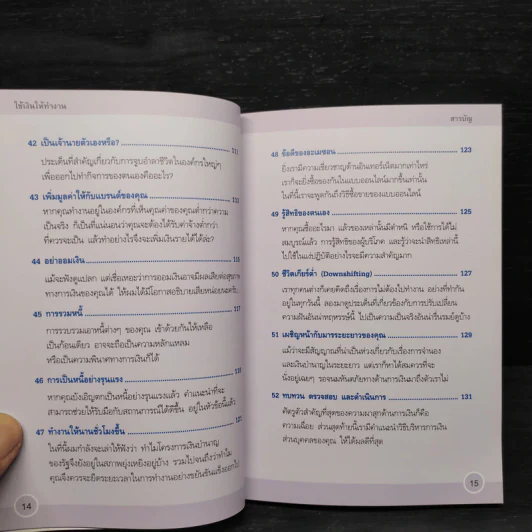 ใช้เงินให้ทำงาน
42 เป็นเจ้านายตัวเองหรือ? 111
ประเด็นที่สำคัญเกี่ยวกับการจูบอำลาชีวิตในองค์กรใหญ่ๆ
เพื่อออกไปทำกิจการของตนเองคืออะไร?
43 เพิ่มมูลค่าให้กับแบรนด์ของคุณ
หากคุณทำงานอยู่ในองค์กรที่เห็นคุณค่าของคุณต่ำกว่าความ
เป็นจริง ก็เป็นที่แน่นอนว่าคุณจะต้องได้รับค่าจ้างต่ำกว่า
ที่ควรจะเป็น แล้วทำอย่างไรจึงจะเพิ่มเงินรายได้ได้ล่ะ?
44 อย่าออมเงิน
แม้จะฟังดูแปลก แต่เชื่อเถอะว่าการออมเงินอาจมีผลเสียต่อสุขภาพ
ทางการเงินของคุณได้ ให้ผมได้มีโอกาสอธิบายเสียหน่อยนะครับ
45 การรวมหนี้
การรวบรวมเอาหนี้ต่างๆ ของคุณ เข้าด้วยกันให้เหลือ
เป็นก้อนเดียว อาจจะถือเป็นความหลักแหลม
หรือเป็นความพินาศทางการเงินก็ได้
46 การเป็นหนี้อย่างรุนแรง
หากคุณบังเอิญตกเป็นหนี้อย่างรุนแรงแล้ว คำแนะนำที่จะ
สามารถช่วยให้รับมือกับสถานการณ์ได้ดีขึ้น อยู่ในหัวข้อนี้แล้ว
47 ทำงานให้นานชั่วโมงขึ้น
ในที่นี้ผมกำลังจะเล่าให้ฟังว่า ทำไมโครงการเงินบำนาญ
ของรัฐจึงยังอยู่ในสภาพยุ่งเหยิงอยู่บ้าง รวมไปจนถึงว่าทำไม
คุณจึงควรจะยืดระยะเวลาในการทำงานอย่างขยันขันแข็งออกไป
14
สารบัญ
48 ข้อดีของอะเมซอน 123
ยิ่งเรามีความเชี่ยวชาญด้านอินเทอร์เน็ตมากเท่าไหร่
เราก็จะยิ่งซื้อของกันในแบบออนไลน์มากขึ้นเท่านั้น
ในที่นี้เราจะพูดกันถึงวิธีซื้อขายของแบบออนไลน์
49 รู้สิทธิของตนเอง 125
หากคุณซื้ออะไรมา แล้วของเหล่านั้นมีตำหนิ หรือใช้การได้ไม่
สมบูรณ์แล้ว การรู้สิทธิของผู้บริโภค และรู้ว่าจะนำสิทธิเหล่านี้
ไปใช้ในแง่ปฏิบัติอย่างไรจะมีความสำคัญมาก
50 ชีวิตเกียร์ต่ำ (Downshifting) 127
เราทุกคนต่างก็เคยคิดถึงเรื่องการไม่ต้องไปทำงาน อย่างที่ทำกัน
อยู่ในทุกวันนี้ ลองมาดูประเด็นที่เกี่ยวข้องกับการปรับเปลี่ยน
ความฝันอันน่าหฤหรรษ์นี้ ไปเป็นความเป็นจริงอันน่ารื่นรมย์ดูบ้าง
51 เผชิญหน้ากับมารระยะยาวของคุณ 129
แม้ว่าจะมีสัญญาณที่น่าเป็นห่วงเกี่ยวกับเรื่องการจำนอง
และเงินบำนาญในระยะยาว แต่เราก็หาได้สมควรที่จะ
นั่งอยู่เฉยๆ รอจนมหันตภัยทางด้านการเงินมาถึงตัวเราไม่
52 ทบทวน ตรวจสอบ และดำเนินการ 131
ศัตรูตัวสำคัญที่สุดของความผาสุกด้านการเงินก็คือ
ความเฉื่อย ส่วนสุดท้ายนี้เรามีคำแนะนำวิธีบริหารการเงิน
ส่วนบุคคลของคุณ ให้ได้ผลดีที่สุด
15